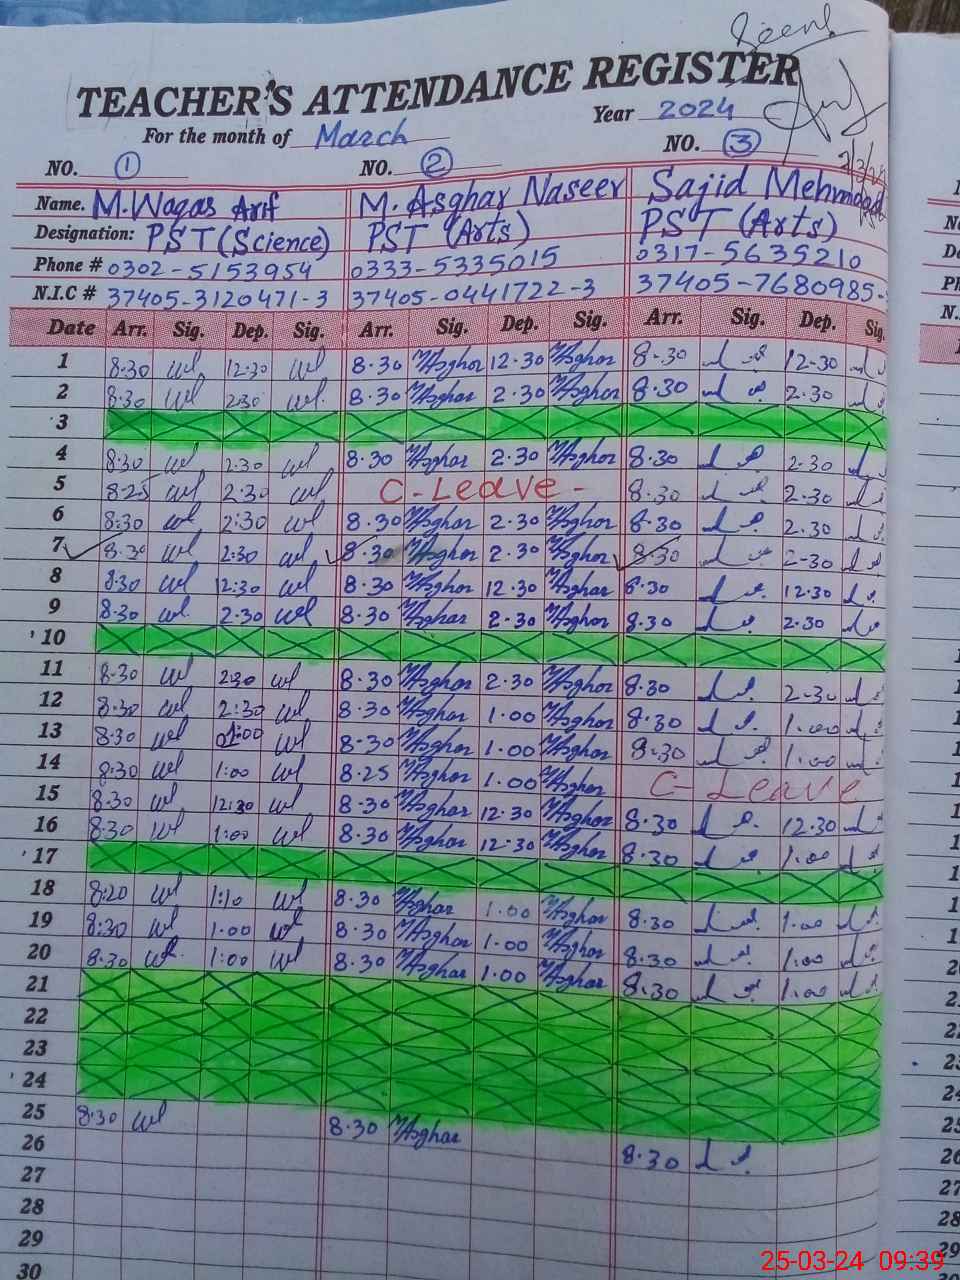 Seen
TEACHER'S ATTENDANCE REGISTER
For the month of March Year 2024
NO. 1 NO. 2 NO. 3
Name. M.Waqas Arif M. Asghar Naseer Sajid Mehmood
Designation: PST (Science) PST (Arts) PST (Arts)
Phone # 0302-5153954 0333-5335015 0317-5635210
N.I.C # 37405-3120471-3 37405-0441722-3 37405-7680985-
Date Arr. Sig. Dep. Sig. Arr. Sig. Dep. Sig. Arr. Sig. Dep. Sig.
1 8:30 wl 12:30 wl 8.30 MAsghar 12.30 MAsghar 8.30 12-30
2 8:30 wl 2:30 wl 8.30 MAsghar 2.30 MAsghar 8.30 2.30
3
4 8:30 wl 2:30 wl 8.30 MAsghar 2.30 MAsghar 8.30 2.30
5 8:25 wl 2:30 wl C-Leave- 8.30 2.30
6 8:30 wl 2:30 wl 8.30 MAsghar 2.30 MAsghar 8.30 2.30
7 8:30 wl 2:30 wl 8.30 MAsghar 2.30 MAsghar 8-30 2-30
8 8:30 wl 12:30 wl 8.30 MAsghar 12.30 MAsghar 8.30 12.30
9 8:30 wl 2:30 wl 8.30 MAsghar 2.30 MAsghar 8.30 2.30
10
11 8:30 wl 2:30 wl 8.30 MAsghar 2.30 MAsghar 8.30 2-30
12 8:30 wl 2:30 wl 8.30 MAsghar 1.00 MAsghar 8.30 1.00
13 8:30 wl 01:00 wl 8.30 MAsghar 1.00 MAsghar 8.30 1.00
14 8:30 wl 1:00 wl 8.25 MAsghar 1.00 MAsghar C-Leave
15 8:30 wl 12:30 wl 8.30 MAsghar 12.30 MAsghar 8.30 12.30
16 8:30 wl 1:00 wl 8.30 MAsghar 12-30 MAsghar 8.30 1.00
17
18 8:20 wl 1:10 wl 8.30 MAsghar 1.00 MAsghar 8.30 1.00
19 8:30 wl 1:00 wl 8.30 MAsghar 1.00 MAsghar 8.30 1.00
20 8:30 wl 1:00 wl 8.30 MAsghar 1.00 MAsghar 8.30 1.00
21
22
23
24
25 8:30 wl 8.30 MAsghar 8.30
26
27
28
29
30
25-03-24 09:39